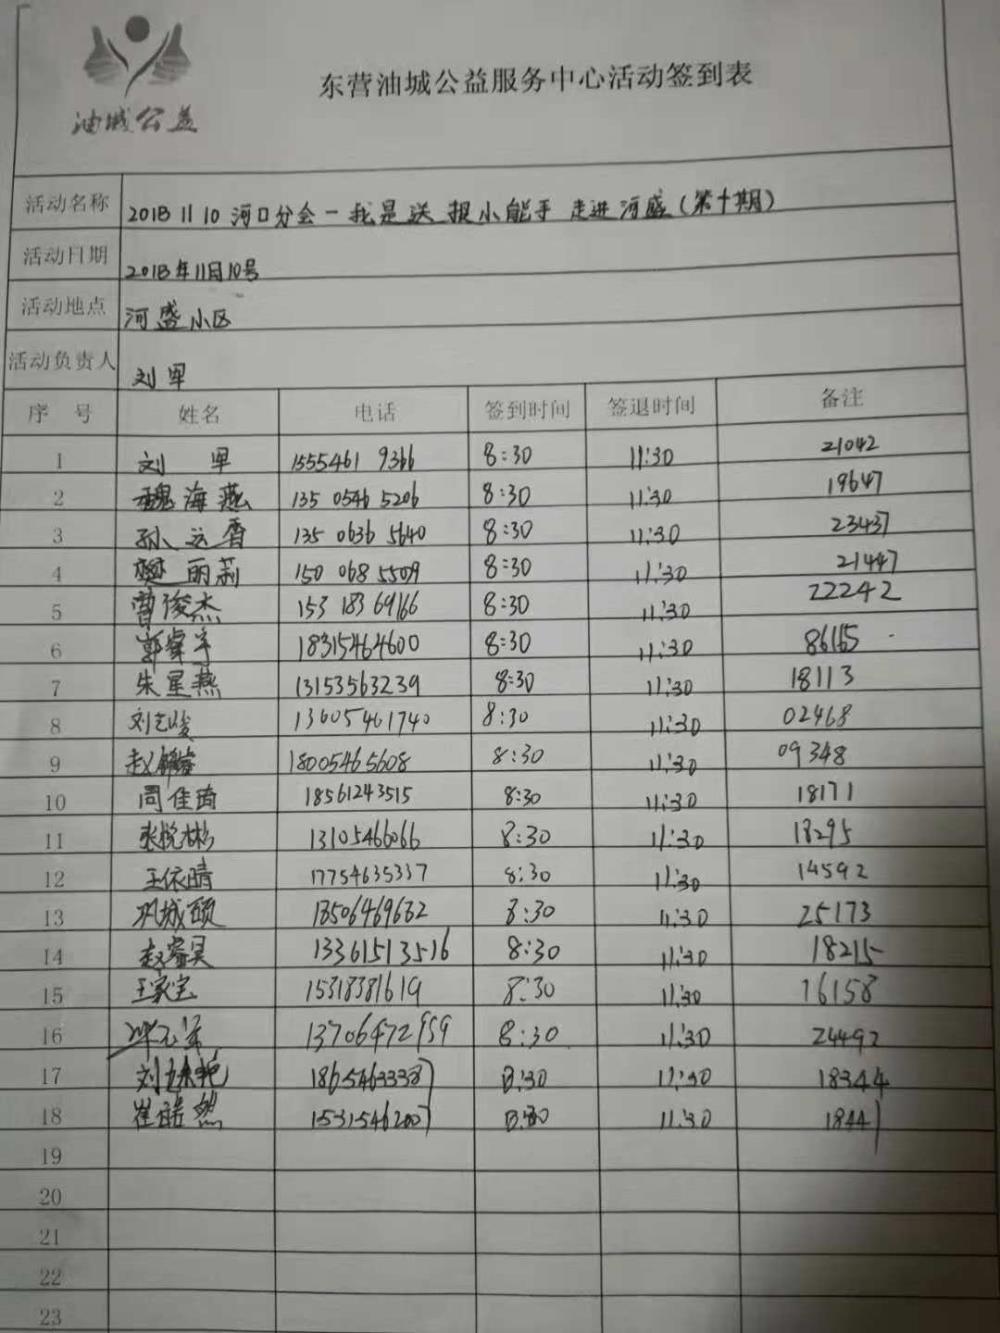 油城公益
东营油城公益服务中心活动签到表
活动名称 2018 11 10 河口分会-我是送报小能手 走进河盛(第十期)
活动日期 2018年11月10号
活动地点 河盛小区
活动负责人 刘军
序号 姓名 电话 签到时间 签退时间 备注
1 刘军 1555461 9366 8:30 11:30 21042
2 魏海燕 135 0546 5206 8:30 11:30 19647
3 孙运香 135 0636 5640 8:30 11:30 23437
4 丽莉 150 068 5509 8:30 11:30 21447
5 曹俊杰 153 183 69166 8:30 11:30 22242
6 郭 宇 18315464600 8:30 11:30 86165
7 朱星燕 13153563239 8:30 11:30 18113
8 刘志峻 13605461740 8:30 11:30 02468
9 赵 18005465608 8:30 11:30 09348
10 周佳琦 18561243515 8:30 11:30 18171
11 张悦彬 13105466066 8:30 11:30 18295
12 王依晴 17754635337 8:30 11:30 14592
13 巩城颐 13506469632 8:30 11:30 25173
14 赵睿昊 13361513516 8:30 11:30 18215
15 王家宝 15318381619 8:30 11:30 16158
16 13706472959 8:30 11:30 24492
17 刘 艳 8:30 11:30 18344
18 崔诺然 8:30 11:30 18441
19
20
21
22
23